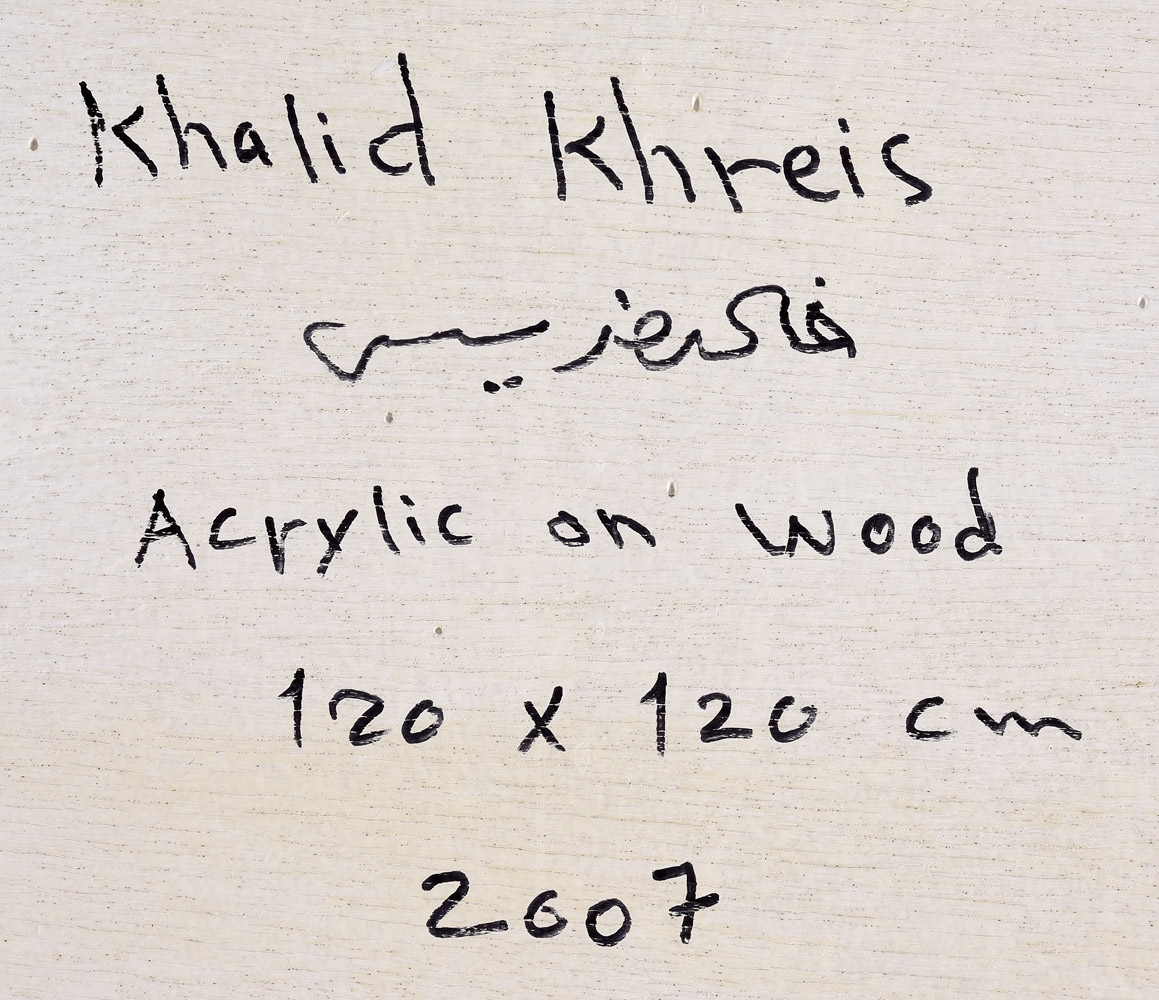 Khalid Khreis
خالد خريس
Acrylic on Wood
120 x 120 cm
2007